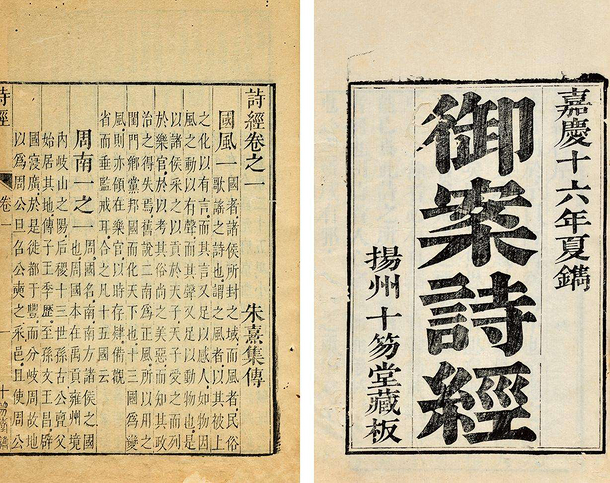 嘉慶十六年夏鐫
御案詩經
揚州十笏堂藏板
詩經卷之一
朱熹集傳
國風一 國者諸侯所封之域而風者民俗
歌謠之詩也謂之風者以其被上
之化以有言而其言又足以感人如物因
風之動以有聲而其聲又足以動物也是
以諸侯采之以貢於天子天子受之而列
於樂官於以考其俗尚之美惡而知其政
治之得失焉舊說二南爲正風所以用之
閨門鄉黨邦國而化天下也十三國爲變
風則亦領在樂官以時存肄備觀
省而垂監戒耳合之凡十五國云
周南一之一 周國名南南方諸侯之國
也周國本在禹貢雍州境
內岐山之陽后稷十三世孫古公亶父
始居其地傳子王季歷至孫文王昌辟
國寖廣於是徙都于豐而分岐周故地
以爲周公旦召公奭之采邑且使周公
詩經
卷一
一